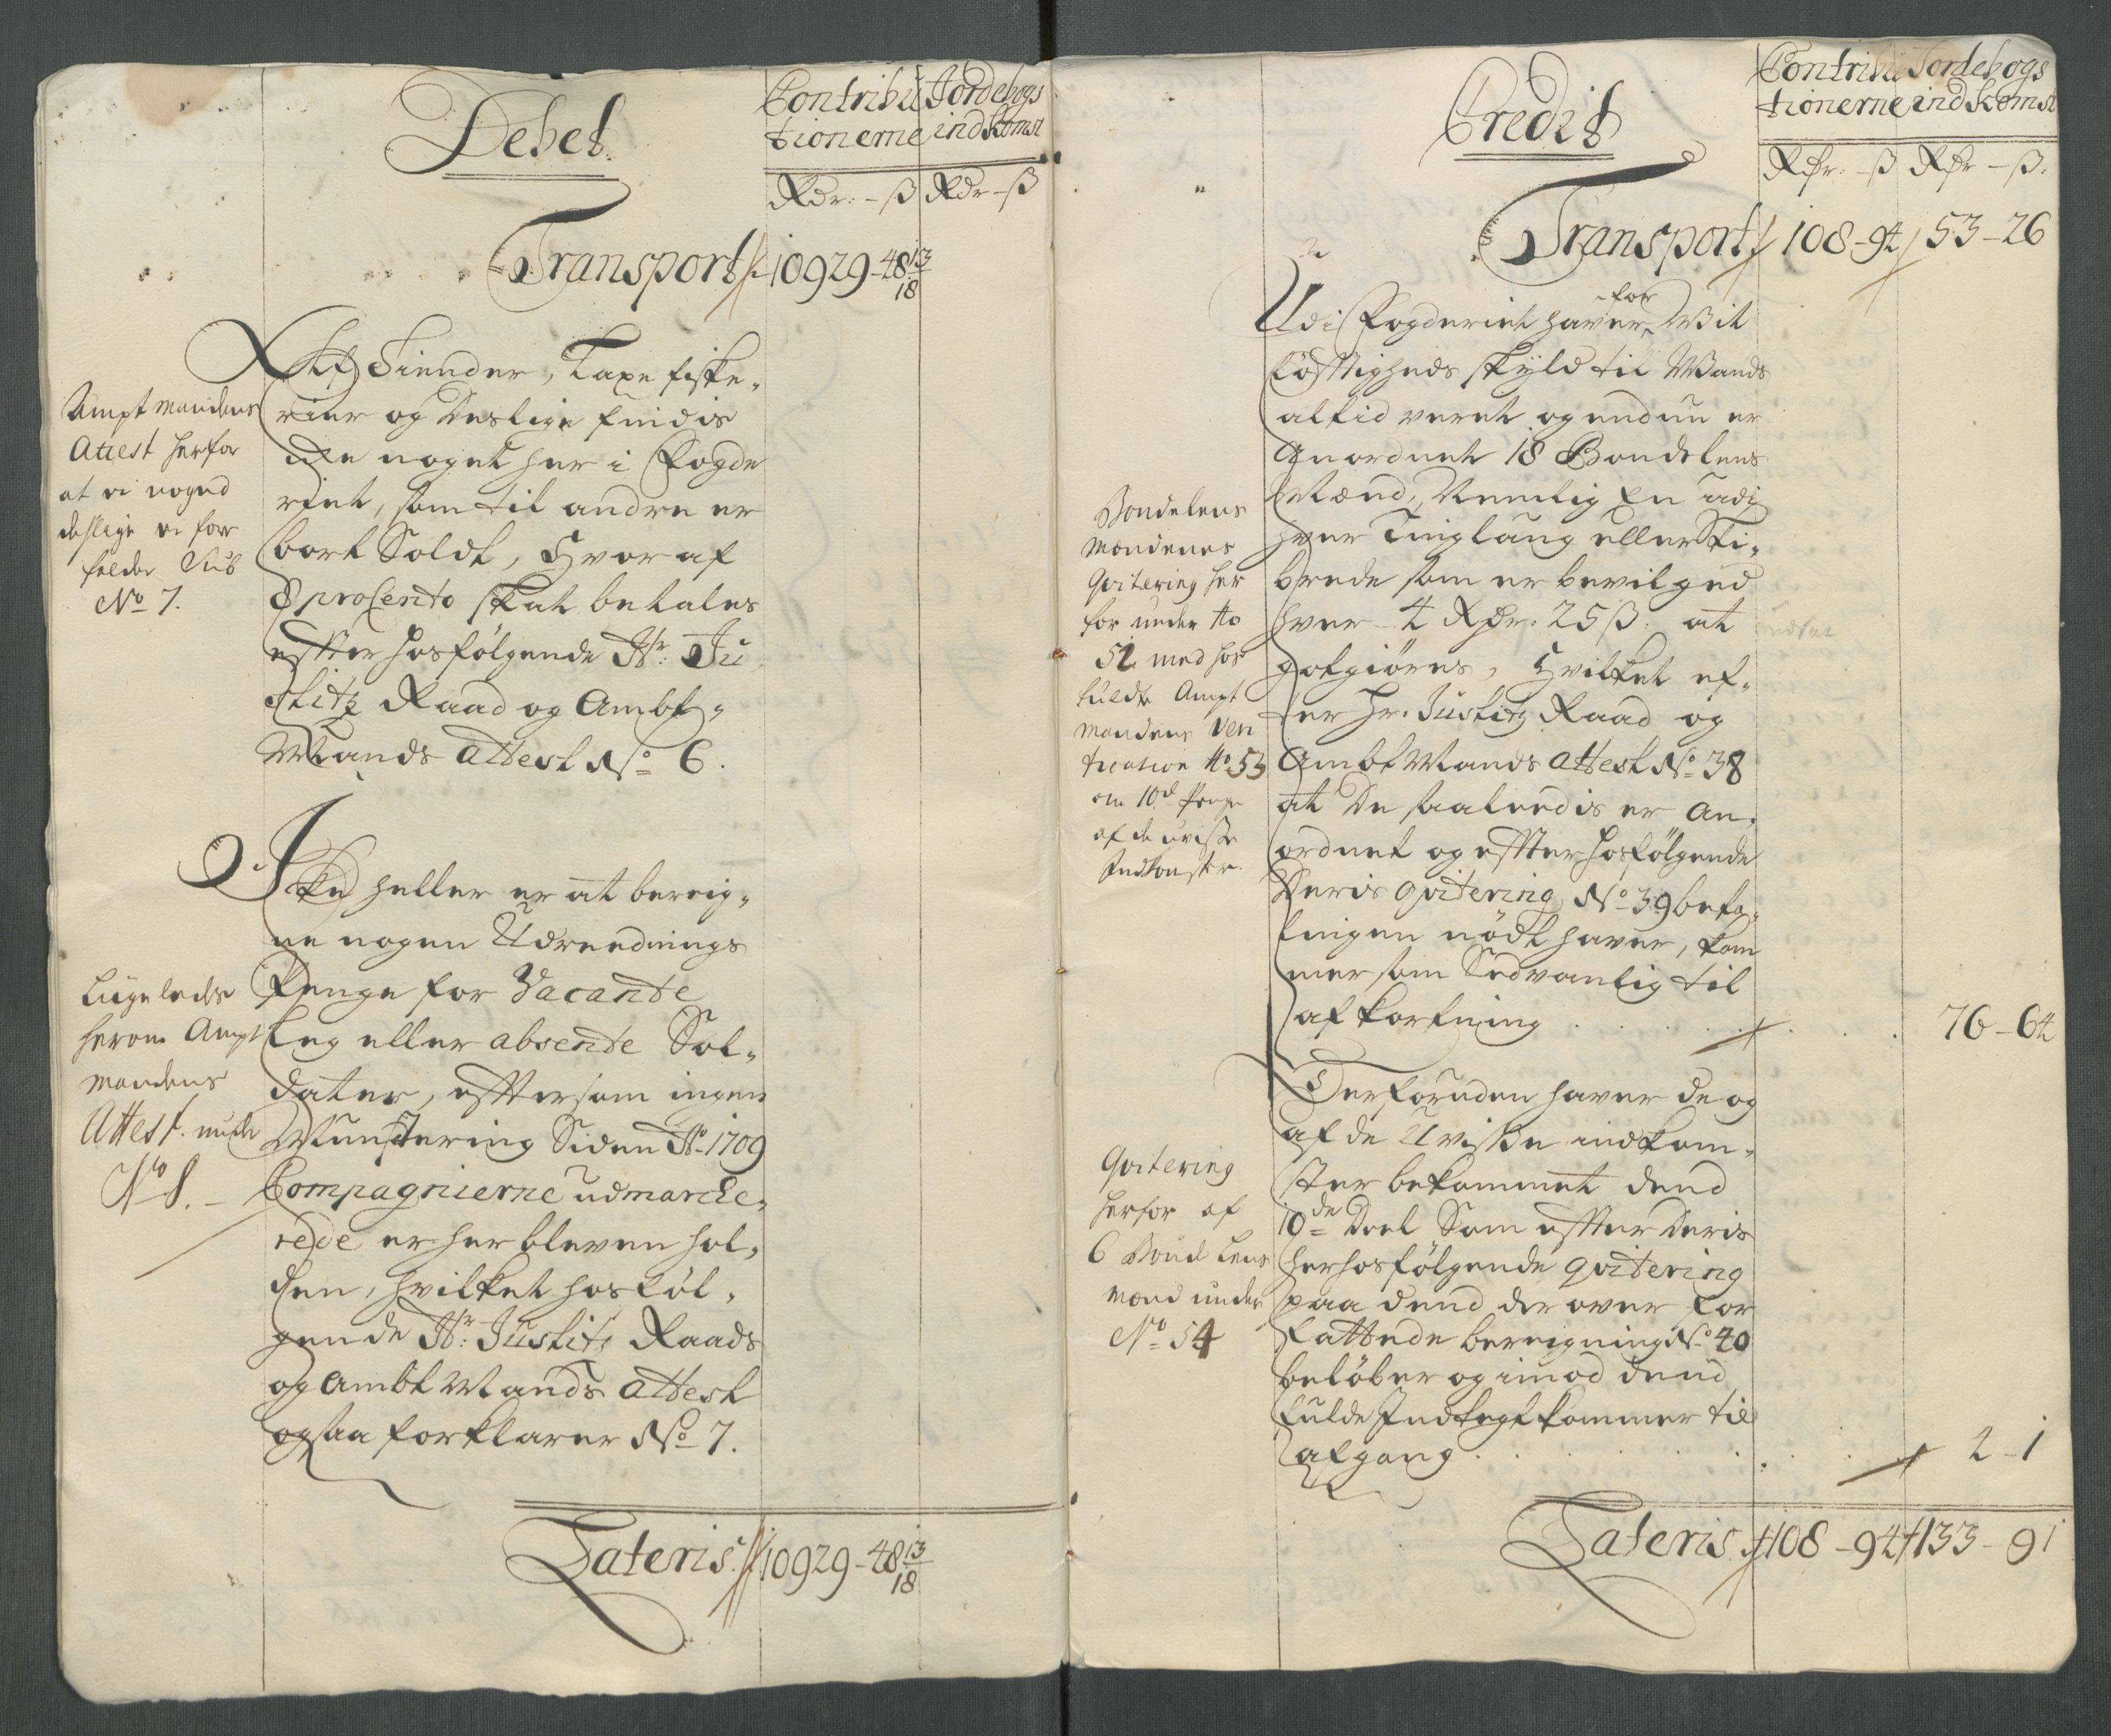 Debet
Contribu
tionerne
Jordebogs
indkomst
Rdr. - ß Rdr - ß
Transport 10929 - 48 13/18
Aff Tiender, Laxe fiske-
rier og deslige findis
icke noget her i Fogde
riet, som til andre er
bort Soldt, Hvor af
8 pro Cento skat betales
effter hosfølgende Hr: Ju
stitz Raad og Ambt-
Mands attest No 6.
Amptmandens
Attest herfor
at ei noged
deslige ei for
falder Sub
No 7.
Icke heller er at bereig-
ne nogen Udreednings
Penge for Vacante
Leg eller absente Sol-
dater, efftersom ingen
Munstering Siden Ao 1709
Compagnierne udmarche-
rede er her bleven hol-
den, hvilket hosføl-
gende Hr: Justitz Raads
og Ambt Mands attest
ogsaa forklarer No 7.
Liigeleds
herom Ampt
mandens
Attest under
No 8.
Lateris 10929 - 48 13/18
Credit
Contribu
tionerne
Jordebogs
indkomst
Rdr. - ß Rdr - ß.
Transport 108 - 94 53 - 26
Udi Fogderiet haver for Vit
løfftigheds skyld til Mands
altid veret og endnu er
Anordnet 18 Bondelens
Mænd, Nemlig En udj
hver Tinglaug eller Ski-
brede som er bevilged
hver 4 Rdr. 25 ß. at
gotgiøres, Hvilket ef-
ter Hr. Justitz Raad og
Ambt Mands attest No 38
at De saaledis er an-
ordnet og effter hosfølgende
Deris qvitering No 39 beta-
lingen nødt haver, kom
mer som Sedvanlig til
afkortning 76 - 64
Bondelens
Mændenes
Qvitering her
for under No
52 med hos
fuldte Ampt
mandens Veri
fication No 53
om 10d Penge
af de uvisse
Indkomster
Derforuden haver de og
af de Uvisse indkom-
ster bekommet dend
10de Deel Som effter Deris
herhosfølgende qvitering
paa dend der over for
fattede bereigning No 40
beløber og imod dend
fulde Indtegt kommer til
afgang 2 - 1
Qvitering
herfor af
6 Bonde Lens
mænd under
No 54
Lateris 108 - 94 133 - 91